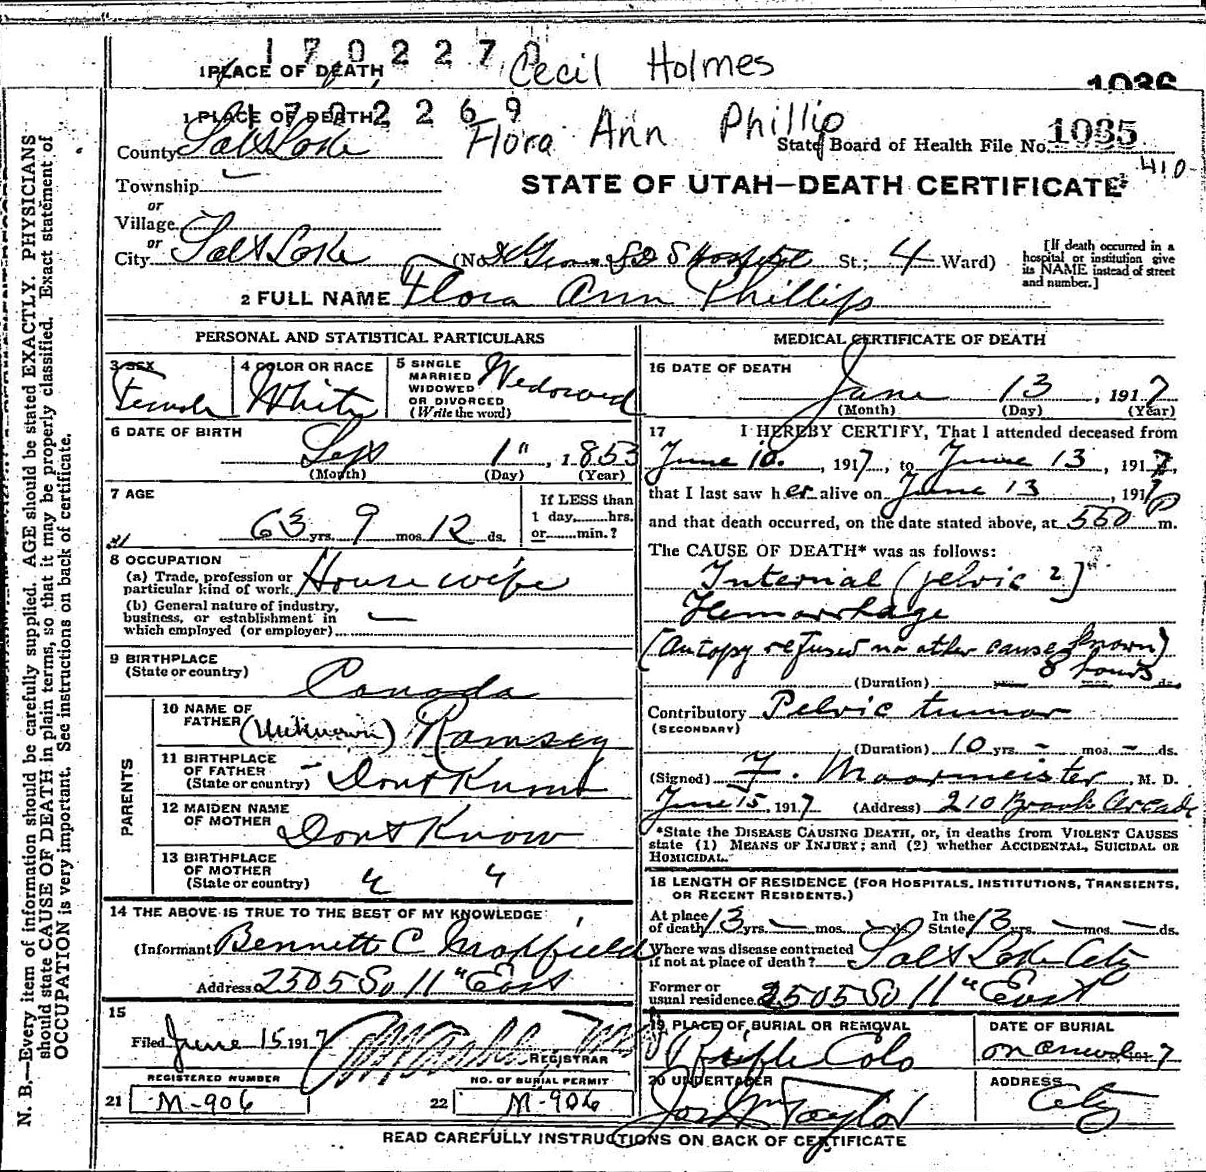 1702270
1 PLACE OF DEATH, Cecil Holmes 1036
1702269
1 PLACE OF DEATH, Flora Ann Phillip
County Salt Lake State Board of Health File No. 1035
410-
Township
STATE OF UTAH—DEATH CERTIFICATE
or
Village
or
City Salt Lake (No. L D S Hospital St.; 4 Ward)
[If death occurred in a hospital or institution give its NAME instead of street and number.]
2 FULL NAME Flora Ann Phillips
PERSONAL AND STATISTICAL PARTICULARS
3 SEX Female
4 COLOR OR RACE White
5 SINGLE MARRIED WIDOWED OR DIVORCED (Write the word) Widowed
6 DATE OF BIRTH
Sept 1", 1853
(Month) (Day) (Year)
7 AGE
63 yrs. 9 mos. 12 ds.
If LESS than 1 day,......hrs. or......min.?
8 OCCUPATION
(a) Trade, profession or particular kind of work House wife
(b) General nature of industry, business, or establishment in which employed (or employer) —
9 BIRTHPLACE (State or country) Canada
PARENTS
10 NAME OF FATHER (Unknown) Ramsey
11 BIRTHPLACE OF FATHER (State or country) Dont Know
12 MAIDEN NAME OF MOTHER Dont Know
13 BIRTHPLACE OF MOTHER (State or country) " "
14 THE ABOVE IS TRUE TO THE BEST OF MY KNOWLEDGE
(Informant Bennett C
Address 2505 So 11" East
15
Filed June 15 1917
REGISTRAR
REGISTERED NUMBER
21 M-906
NO. OF BURIAL PERMIT
22 M-906
MEDICAL CERTIFICATE OF DEATH
16 DATE OF DEATH
June 13, 1917
(Month) (Day) (Year)
17 I HEREBY CERTIFY, That I attended deceased from
June 10, 1917, to June 13, 1917,
that I last saw her alive on June 13, 1917
and that death occurred, on the date stated above, at 550 P m.
The CAUSE OF DEATH* was as follows:
Internal (pelvic ?)
Hemorrhage
(Autopy refused no other cause known)
(Duration) 8 hours ds.
Contributory Pelvic tumor
(SECONDARY)
(Duration) 10 yrs. - mos. - ds.
(Signed) F. Moormeister, M. D.
June 15, 1917 (Address) 210 Brooks Arcade
*State the DISEASE CAUSING DEATH, or, in deaths from VIOLENT CAUSES state (1) MEANS OF INJURY; and (2) whether ACCIDENTAL, SUICIDAL OR HOMICIDAL.
18 LENGTH OF RESIDENCE (FOR HOSPITALS, INSTITUTIONS, TRANSIENTS, OR RECENT RESIDENTS.)
At place of death 13 yrs. — mos. — ds. In the State 13 yrs. — mos. — ds.
Where was disease contracted if not at place of death? Salt Lake City
Former or usual residence 2505 So 11" East
19 PLACE OF BURIAL OR REMOVAL
Rifle Colo
DATE OF BURIAL
7
20 UNDERTAKER
Jos Wm Taylor
ADDRESS
City
READ CAREFULLY INSTRUCTIONS ON BACK OF CERTIFICATE
N. B.—Every item of information should be carefully supplied. AGE should be stated EXACTLY. PHYSICIANS
should state CAUSE OF DEATH in plain terms, so that it may be properly classified. Exact statement of
OCCUPATION is very important. See instructions on back of certificate.